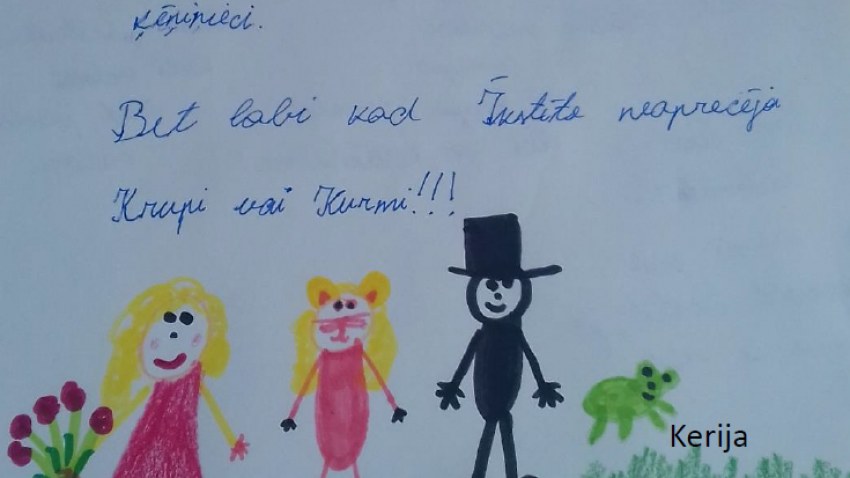 ķēņinieci.
Bet labi kad Īkstīte neaprecēja
Krupi vai Kurmi!!!
Kerija